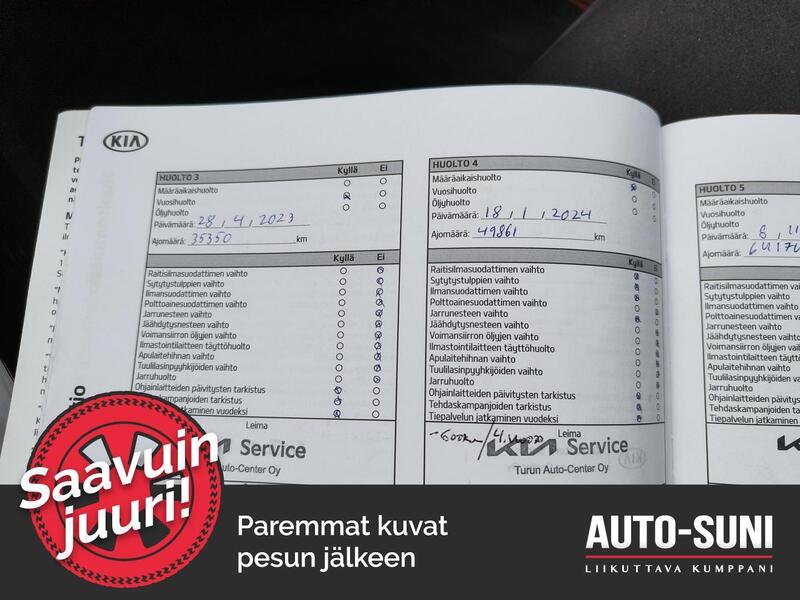 KIA
HUOLTO 3
Kyllä Ei
Määräaikaishuolto
Vuosihuolto
Öljyhuolto
Päivämäärä: 28, 4, 2023
Ajomäärä: 35350 km
Kyllä Ei
Raitisilmasuodattimen vaihto
Sytytystulppien vaihto
Ilmansuodattimen vaihto
Polttoainesuodattimen vaihto
Jarrunesteen vaihto
Jäähdytysnesteen vaihto
Voimansiirron öljyjen vaihto
Ilmastointilaitteen täyttöhuolto
Apulaitehihnan vaihto
Tuulilasinpyyhkijöiden vaihto
Jarruhuolto
Ohjainlaitteiden päivitysten tarkistus
kampanjoiden tarkistus
jatkaminen vuodeksi
Leima
KIA Service
Auto-Center Oy
HUOLTO 4
Kyllä Ei
Määräaikaishuolto
Vuosihuolto
Öljyhuolto
Päivämäärä: 18, 1, 2024
Ajomäärä: 49861 km
Kyllä Ei
Raitisilmasuodattimen vaihto
Sytytystulppien vaihto
Ilmansuodattimen vaihto
Polttoainesuodattimen vaihto
Jarrunesteen vaihto
Jäähdytysnesteen vaihto
Voimansiirron öljyjen vaihto
Ilmastointilaitteen täyttöhuolto
Apulaitehihnan vaihto
Tuulilasinpyyhkijöiden vaihto
Jarruhuolto
Ohjainlaitteiden päivitysten tarkistus
Tehdaskampanjoiden tarkistus
Tiepalvelun jatkaminen vuodeksi
Leima
KIA Service
Turun Auto-Center Oy
HUOLTO 5
Määräaikaishuolto
Vuosihuolto
Öljyhuolto
Päivämäärä: 8, 11
Ajomäärä:
Raitisilmasuodattimen
Sytytystulppien vaihto
Ilmansuodattimen vaih
Polttoainesuodattimen
Jarrunesteen vaihto
Jäähdytysnesteen vai
Voimansiirron öljyjen
Ilmastointilaitteen tä
Apulaitehihnan vaihto
Tuulilasinpyyhkijöide
Jarruhuolto
Ohjainlaitteiden päiv
Tehdaskampanjoiden
Tiepalvelun jatkamin
Saavuin
juuri!
Paremmat kuvat
pesun jälkeen
AUTO-SUNI
LIIKUTTAVA KUMPPANI